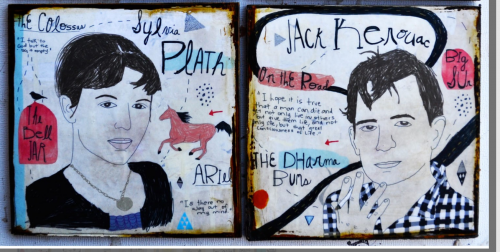 The Colossus
Sylvia
PLATH
"I talk to
God but the
sky is empty"
The
Bell
JAR
ARIEL
"Is there no
way out of
my mind
JACK Kerouac
On the Road
Big
SUR
"I hope it is true
that a man can die and
yet not only live in others
but give them life, and not
only life, but that great
consciousness of life."
THE DHarma
Bums